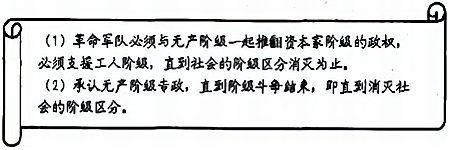 （1）革命军队必须与无产阶级一起推翻资本家阶级的政权，
必须支援工人阶级，直到社会的阶级区分消灭为止。
（2）承认无产阶级专政，直到阶级斗争结束，即直到消灭社
会的阶级区分。